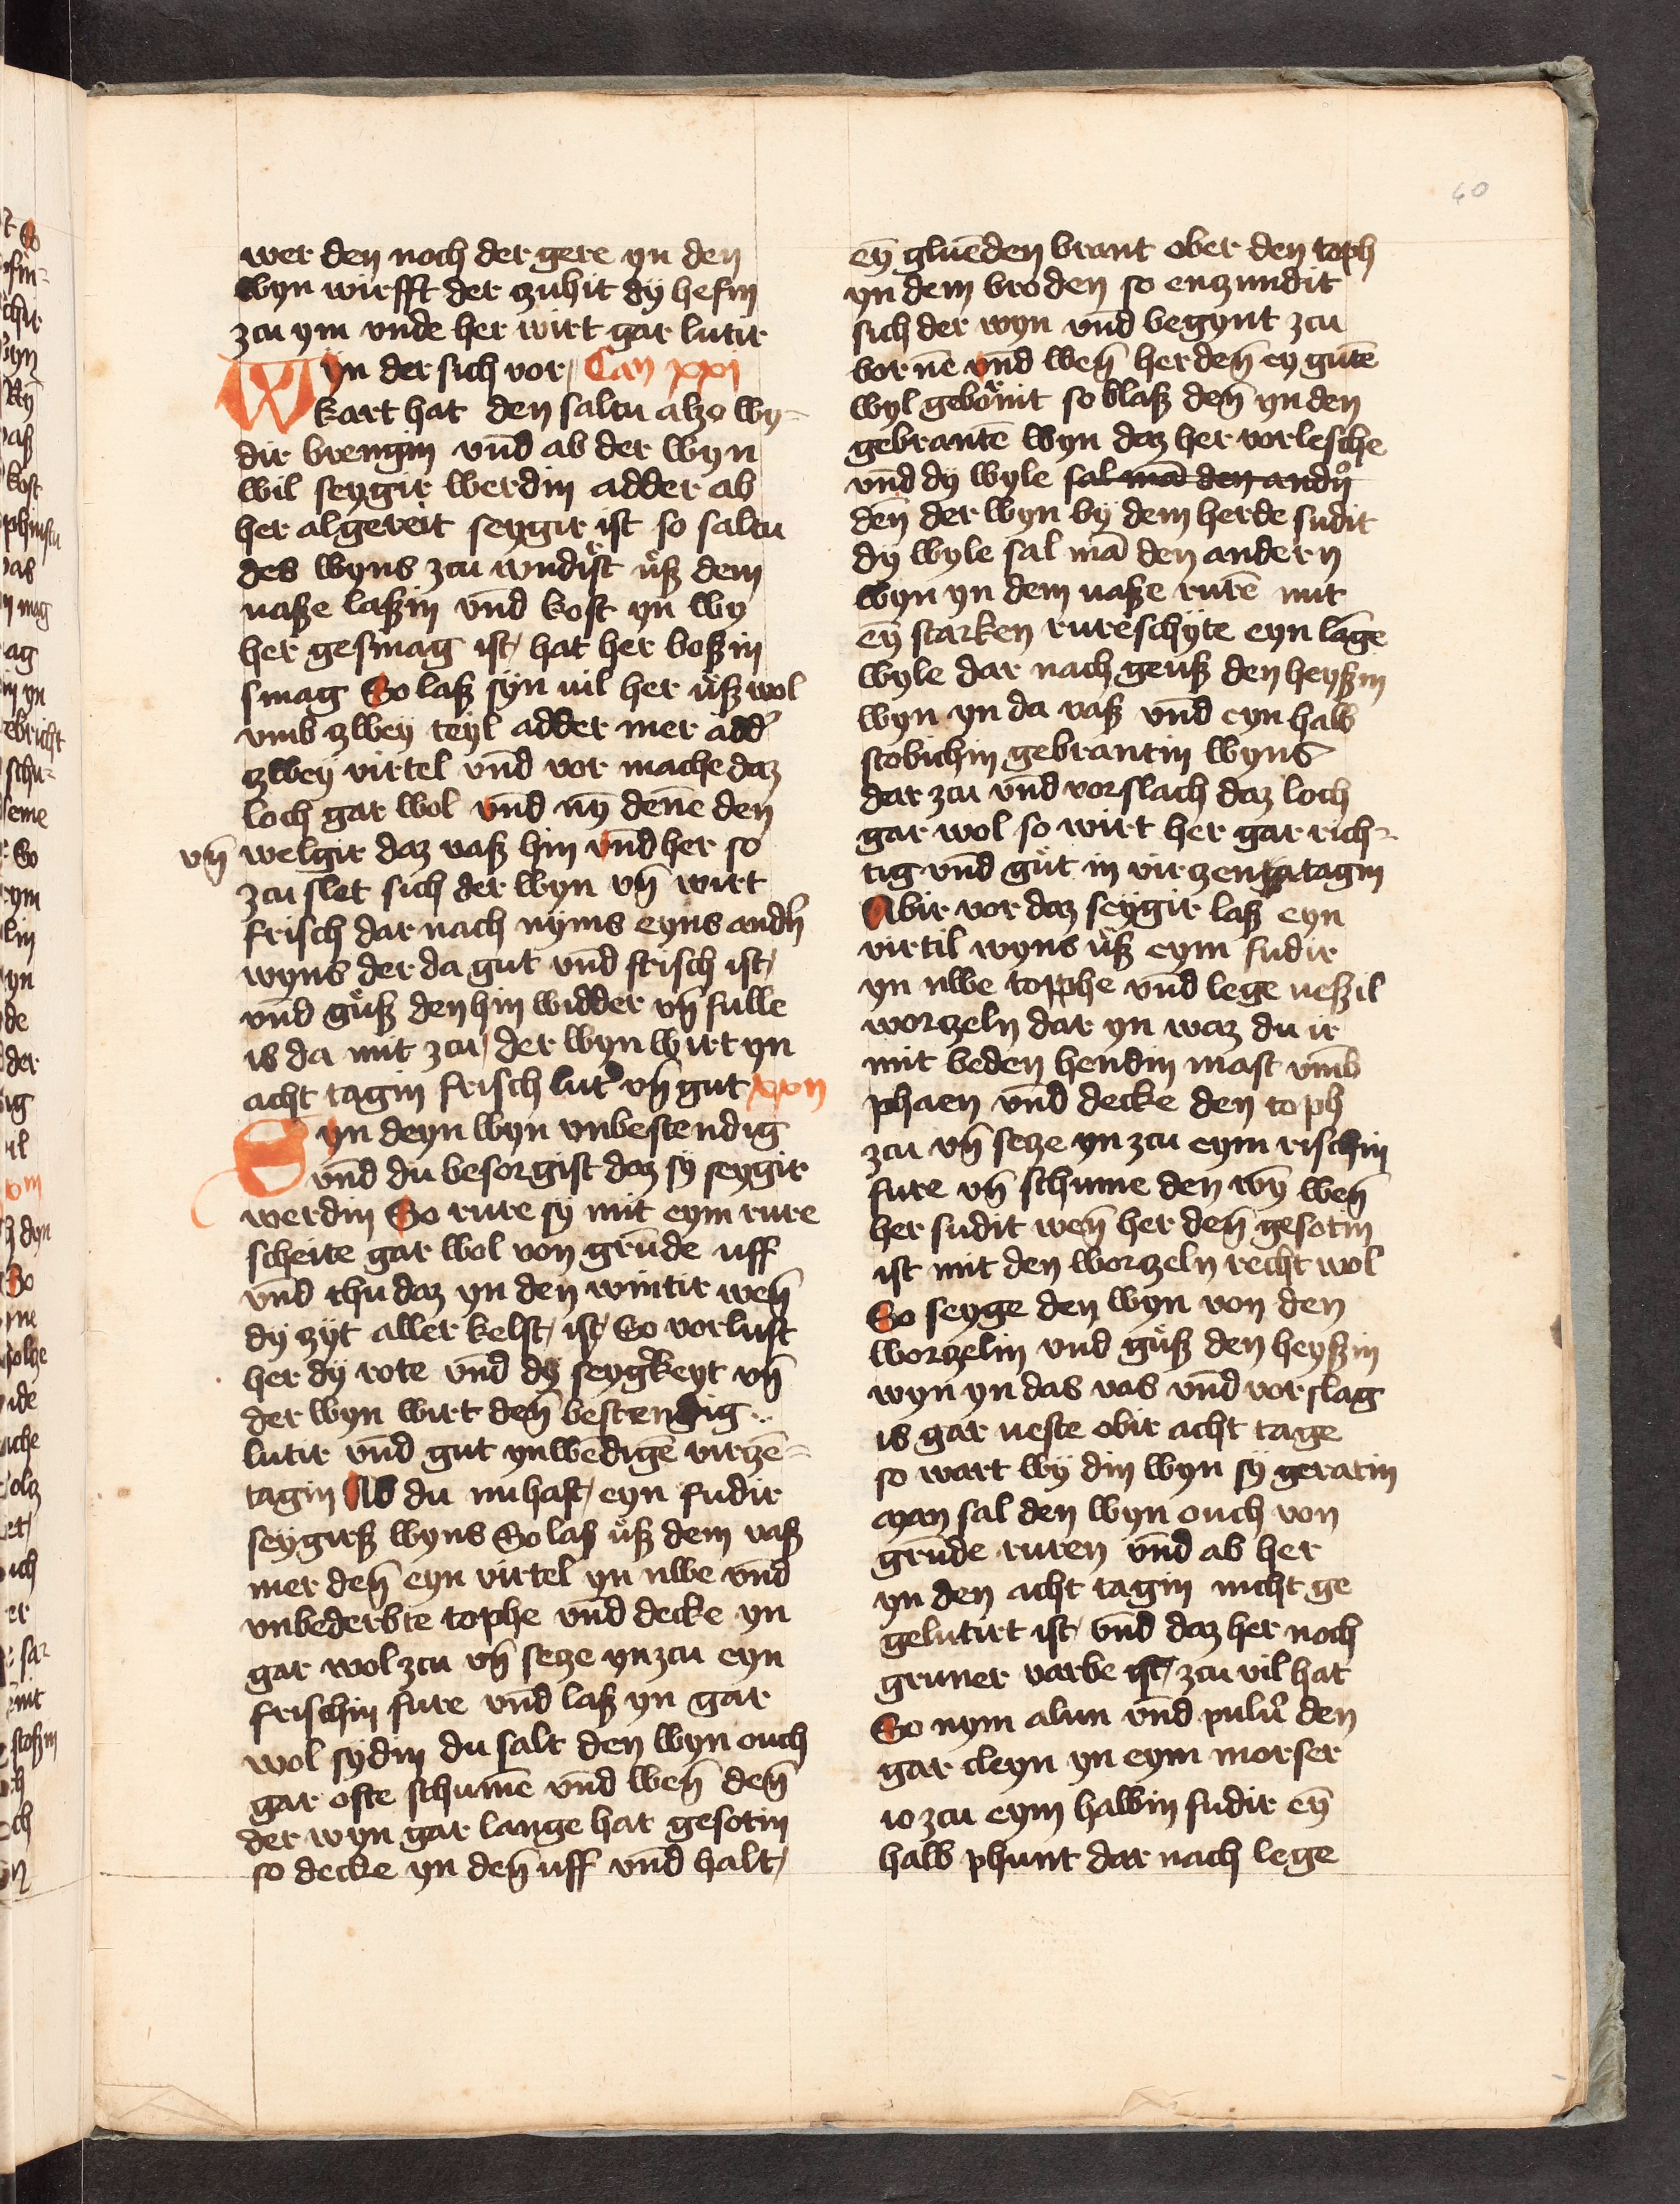 60
wer den noch der gere yn den
wyn wirfft der zuhit dÿ hefin
zcu ym vnde her wirt gar lutir
Wyn der sich vor Cap xxi
kart hat den saltu alzo wy-
dir brengin vn̄d ab der wyn
wil seygir werdin adder ab
her algereit seygir ist so saltu
des wyns zcu vndist uͦß dem
vaße laßin vn̄d kost yn wy
her gesmag ist hat her boßin
smag So laß syn vil her uͦß wol
vmb zwey teyl adder mer add'
zwey virtel vn̄d vor mache daz
loch gar wol vn̄d nȳ den̄e den
vn̄ welgir daz vaß hin vn̄d her so
zcu slet sich der wyn vn̄ wirt
frisch dar nach nyms eyns and'n
wyns der da gut vn̄d frisch ist
vn̄d guͦß den hin widder vn̄ fulle
is da mit zcu der wyn wirt yn
acht tagin frisch lut' vn̄ gut xxii
Syn deyn wyn vnbestendig
vn̄d du besorgist daz sÿ seygir
werdin So rure sÿ mit eym rure
scheite gar wol von grūde uff
vn̄d thu daz yn den wintir wen̄
dÿ zÿt aller kelst ist So vorlust
her dÿ rote vn̄d dÿ seyg'keyt vn̄
der wyn wirt den̄ bestendig..
lutir vn̄d gut ynwēdigē virzē-
tagin Ab du nu hast eyn fudir
seygirß wyns So laß uͦß dem vaß
mer den̄ eyn virtel yn nwe vn̄d
vnbederbte tophe vn̄d decke yn
gar wol zcu vn̄ setze yn zcu eyn
frischin fure vn̄d laß yn gar
wol sydin du salt den wyn ouch
gar ofte schumē vn̄d wen̄ den̄
der wyn gar lange hat gesotin
so decke yn den̄ uff vn̄d halt
eȳ gluēden brant ober den toph
yn dem broden so enzundit
sich der wyn vn̄d begynt zcu
bornē vn̄d wen̄ her den̄ ey gutē
wyl gebornit so blaß den̄ yn den
gebrantē wyn daz her vorlesche
vn̄d dÿ wyle sal mā den andn
den̄ der wyn bÿ dem herde sudit
dÿ wyle sal mā den andern
wyn yn dem vaße rurē mit
eȳ starken rureschyte eyn lāge
wyle dar nach geuß den heyßin
wyn yn da vaß vn̄d eyn halb
stobichin gebrantin wyns
dar zcu vn̄d vorslach daz loch
gar wol so wirt her gar rich-
tig vn̄d guͦt in virzen tagin
Abir vor daz seygir laß eyn
virtil wyns uͦß eym fudir
yn nwe topphe vn̄d lege neßil
worzeln dar yn waz du ir
mit beden hendin mast vm̄b
phaen vn̄d decke den toph
zcu vn̄ setze yn zcu eym rischin
fure vn̄ schume den wȳ wen̄
her sudit wen̄ her den̄ gesotin
ist mit den worzeln recht wol
So seyge den wyn von den
worzelin vnd guͦß den heyßin
wyn yn das vas vn̄d vorslag
is gar veste obir acht tage
so wart wÿ din wyn sÿ geratin
man sal den wyn ouch von
grūde ruren vn̄d ab her
yn den acht tagin nicht ge
gelutirt ist vn̄d daz her noch
gruner varbe ist zcu vil hat
So nym alun vn̄d pulu' den
gar cleyn yn eym morser
io zcu eym halbin fudir eȳ
halb phunt dar nach lege